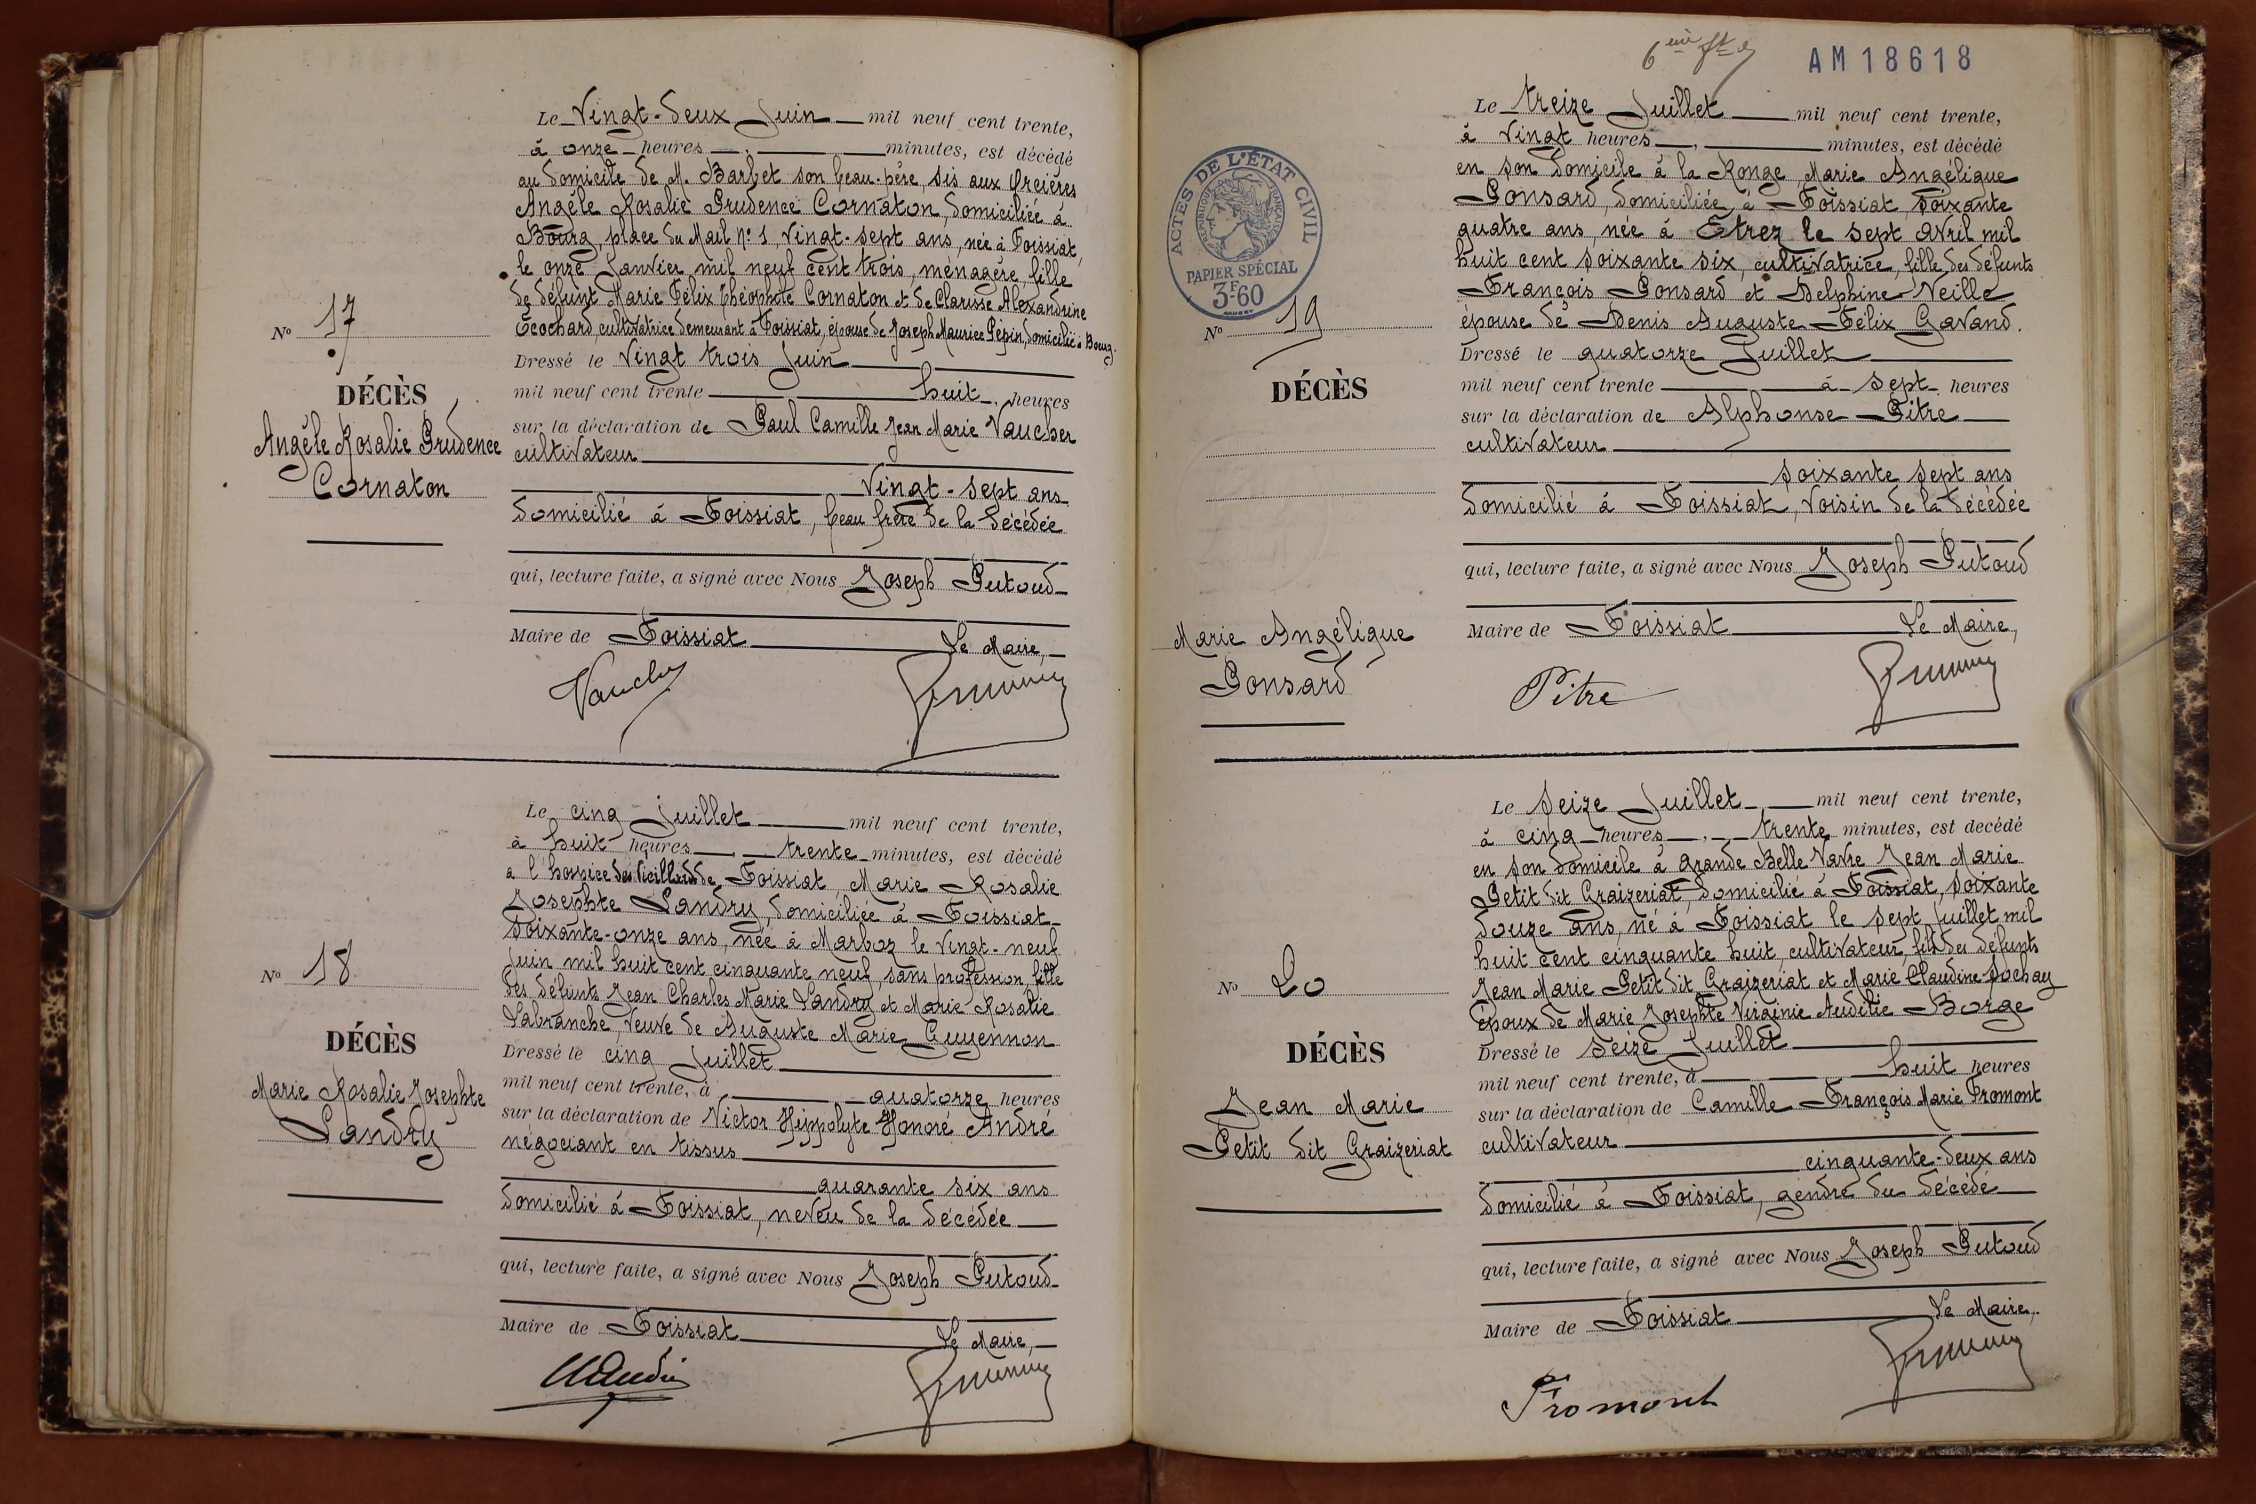 Le Vingt-deux Juin mil neuf cent trente,
à onze heures minutes, est décédé
au domicile de M. Barbet son beau-père, sis aux Orcières
Angèle Rosalie Prudence Cornaton, domiciliée à
Bourg, place du Mail n° 1, vingt-sept ans, née à Foissiat,
le onze Janvier mil neuf cent trois, ménagère, fille
de défunt Marie Félix Théophile Cornaton et de Clarisse Alexandrine
Ecochard, cultivatrice demeurant à Foissiat, épouse de Joseph Maurice Pépin, domicilié à Bourg.
N° 17
Dressé le Vingt trois Juin
DÉCÈS
mil neuf cent trente huit heures
Angèle Rosalie Prudence
Cornaton
sur la déclaration de Paul Camille Jean Marie Vaucher
cultivateur
Vingt-sept ans
domicilié à Foissiat, beau frère de la décédée
qui, lecture faite, a signé avec Nous Joseph Putoud
Maire de Foissiat Le Maire,
Vaucher
Le cinq Juillet mil neuf cent trente,
à huit heures trente minutes, est décédé
à l'hospice des Vieillards de Foissiat, Marie Rosalie
Josephte Landry, domiciliée à Foissiat
soixante-onze ans, née à Marboz le vingt-neuf
Juin mil huit cent cinquante neuf, sans profession, fille
des défunts Jean Charles Marie Landry et Marie Rosalie
Labranche, Veuve de Auguste Marie Guyennon
N° 18
Dressé le cinq Juillet
DÉCÈS
mil neuf cent trente, à quatorze heures
Marie Rosalie Josephte
Landry
sur la déclaration de Victor Hippolyte Honoré André
négociant en tissus
quarante six ans
domicilié à Foissiat, neveu de la décédée
qui, lecture faite, a signé avec Nous Joseph Putoud
Maire de Foissiat Le Maire,
AM18618
Le treize Juillet mil neuf cent trente,
à vingt heures minutes, est décédé
en son domicile à la Ronge, Marie Angélique
Ponsard, domiciliée à Foissiat, soixante
quatre ans, née à Etrez le sept avril mil
huit cent soixante six, cultivatrice, fille des défunts
François Ponsard et Delphine Veille
épouse de Denis Auguste Félix Gavand.
ACTES DE L'ÉTAT CIVIL
RÉPUBLIQUE FRANÇAISE
PAPIER SPÉCIAL
3F60
N° 19
Dressé le quatorze Juillet
DÉCÈS
mil neuf cent trente à sept heures
sur la déclaration de Alphonse Pitre
cultivateur
soixante sept ans
domicilié à Foissiat, Voisin de la décédée
qui, lecture faite, a signé avec Nous Joseph Putoud
Marie Angélique
Ponsard
Maire de Foissiat Le Maire,
Pitre
Le Seize Juillet mil neuf cent trente,
à cinq heures trente minutes, est decédé
en son domicile à Grande Belle Vavre Jean Marie
Petit dit Graizeriat, domicilié à Foissiat, soixante
douze ans, né à Foissiat le sept Juillet mil
huit cent cinquante huit, cultivateur, fils des défunts
Jean Marie Petit dit Graizeriat et Marie Claudine Sochay
époux de Marie Josephte Virginie Audilie Borge
N° 20
Dressé le seize Juillet
DÉCÈS
mil neuf cent trente, à huit heures
Jean Marie
Petit dit Graizeriat
sur la déclaration de Camille François Marie Fromont
cultivateur
cinquante-deux ans
domicilié à Foissiat, gendre du décédé
qui, lecture faite, a signé avec Nous Joseph Putoud
Maire de Foissiat Le Maire,
Fromont